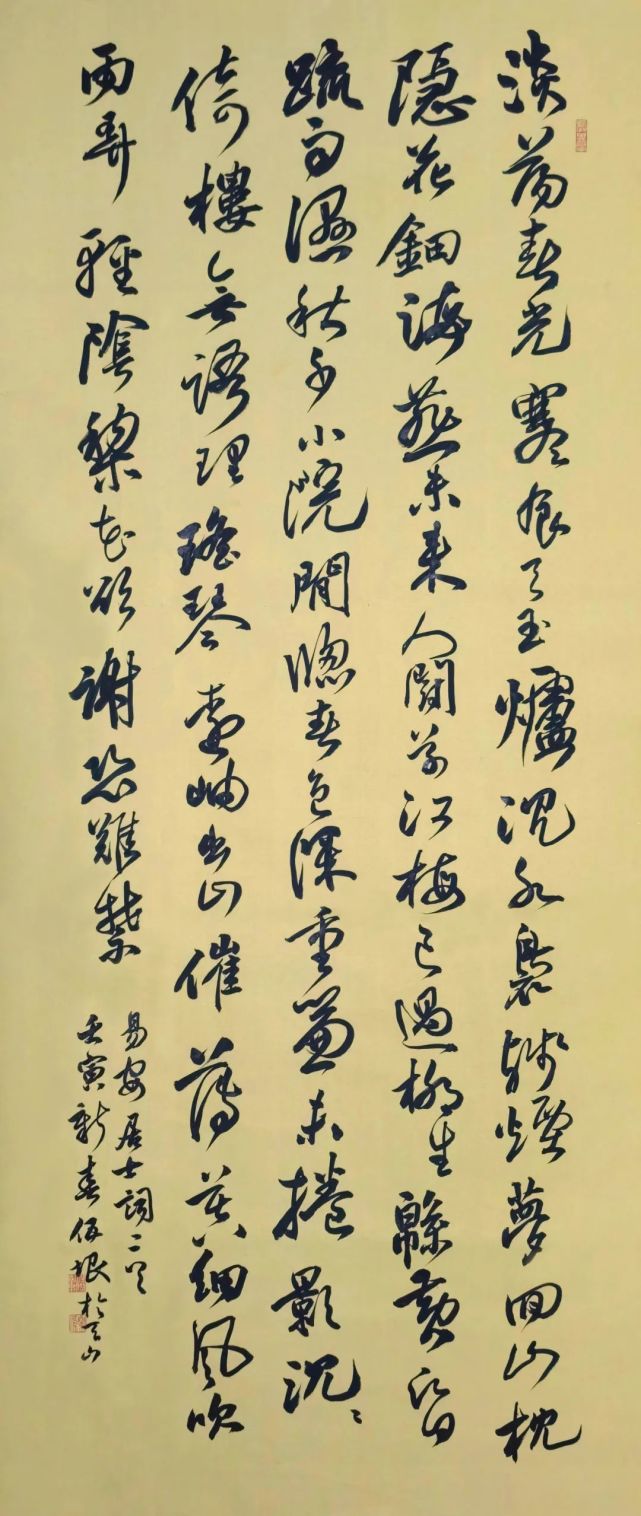 淡蕩春光寒食天玉爐沉水裊殘煙夢回山枕
隱花鈿海燕未來人鬭草江梅已過柳生緜黃昏
疏雨濕秋千小院閒牕春色深重簾未捲影沉〻
倚樓無語理瑤琴遠岫出山催薄暮細風吹
雨弄輕陰梨花欲謝恐難禁
易安居士詞二首
壬寅新春於天山